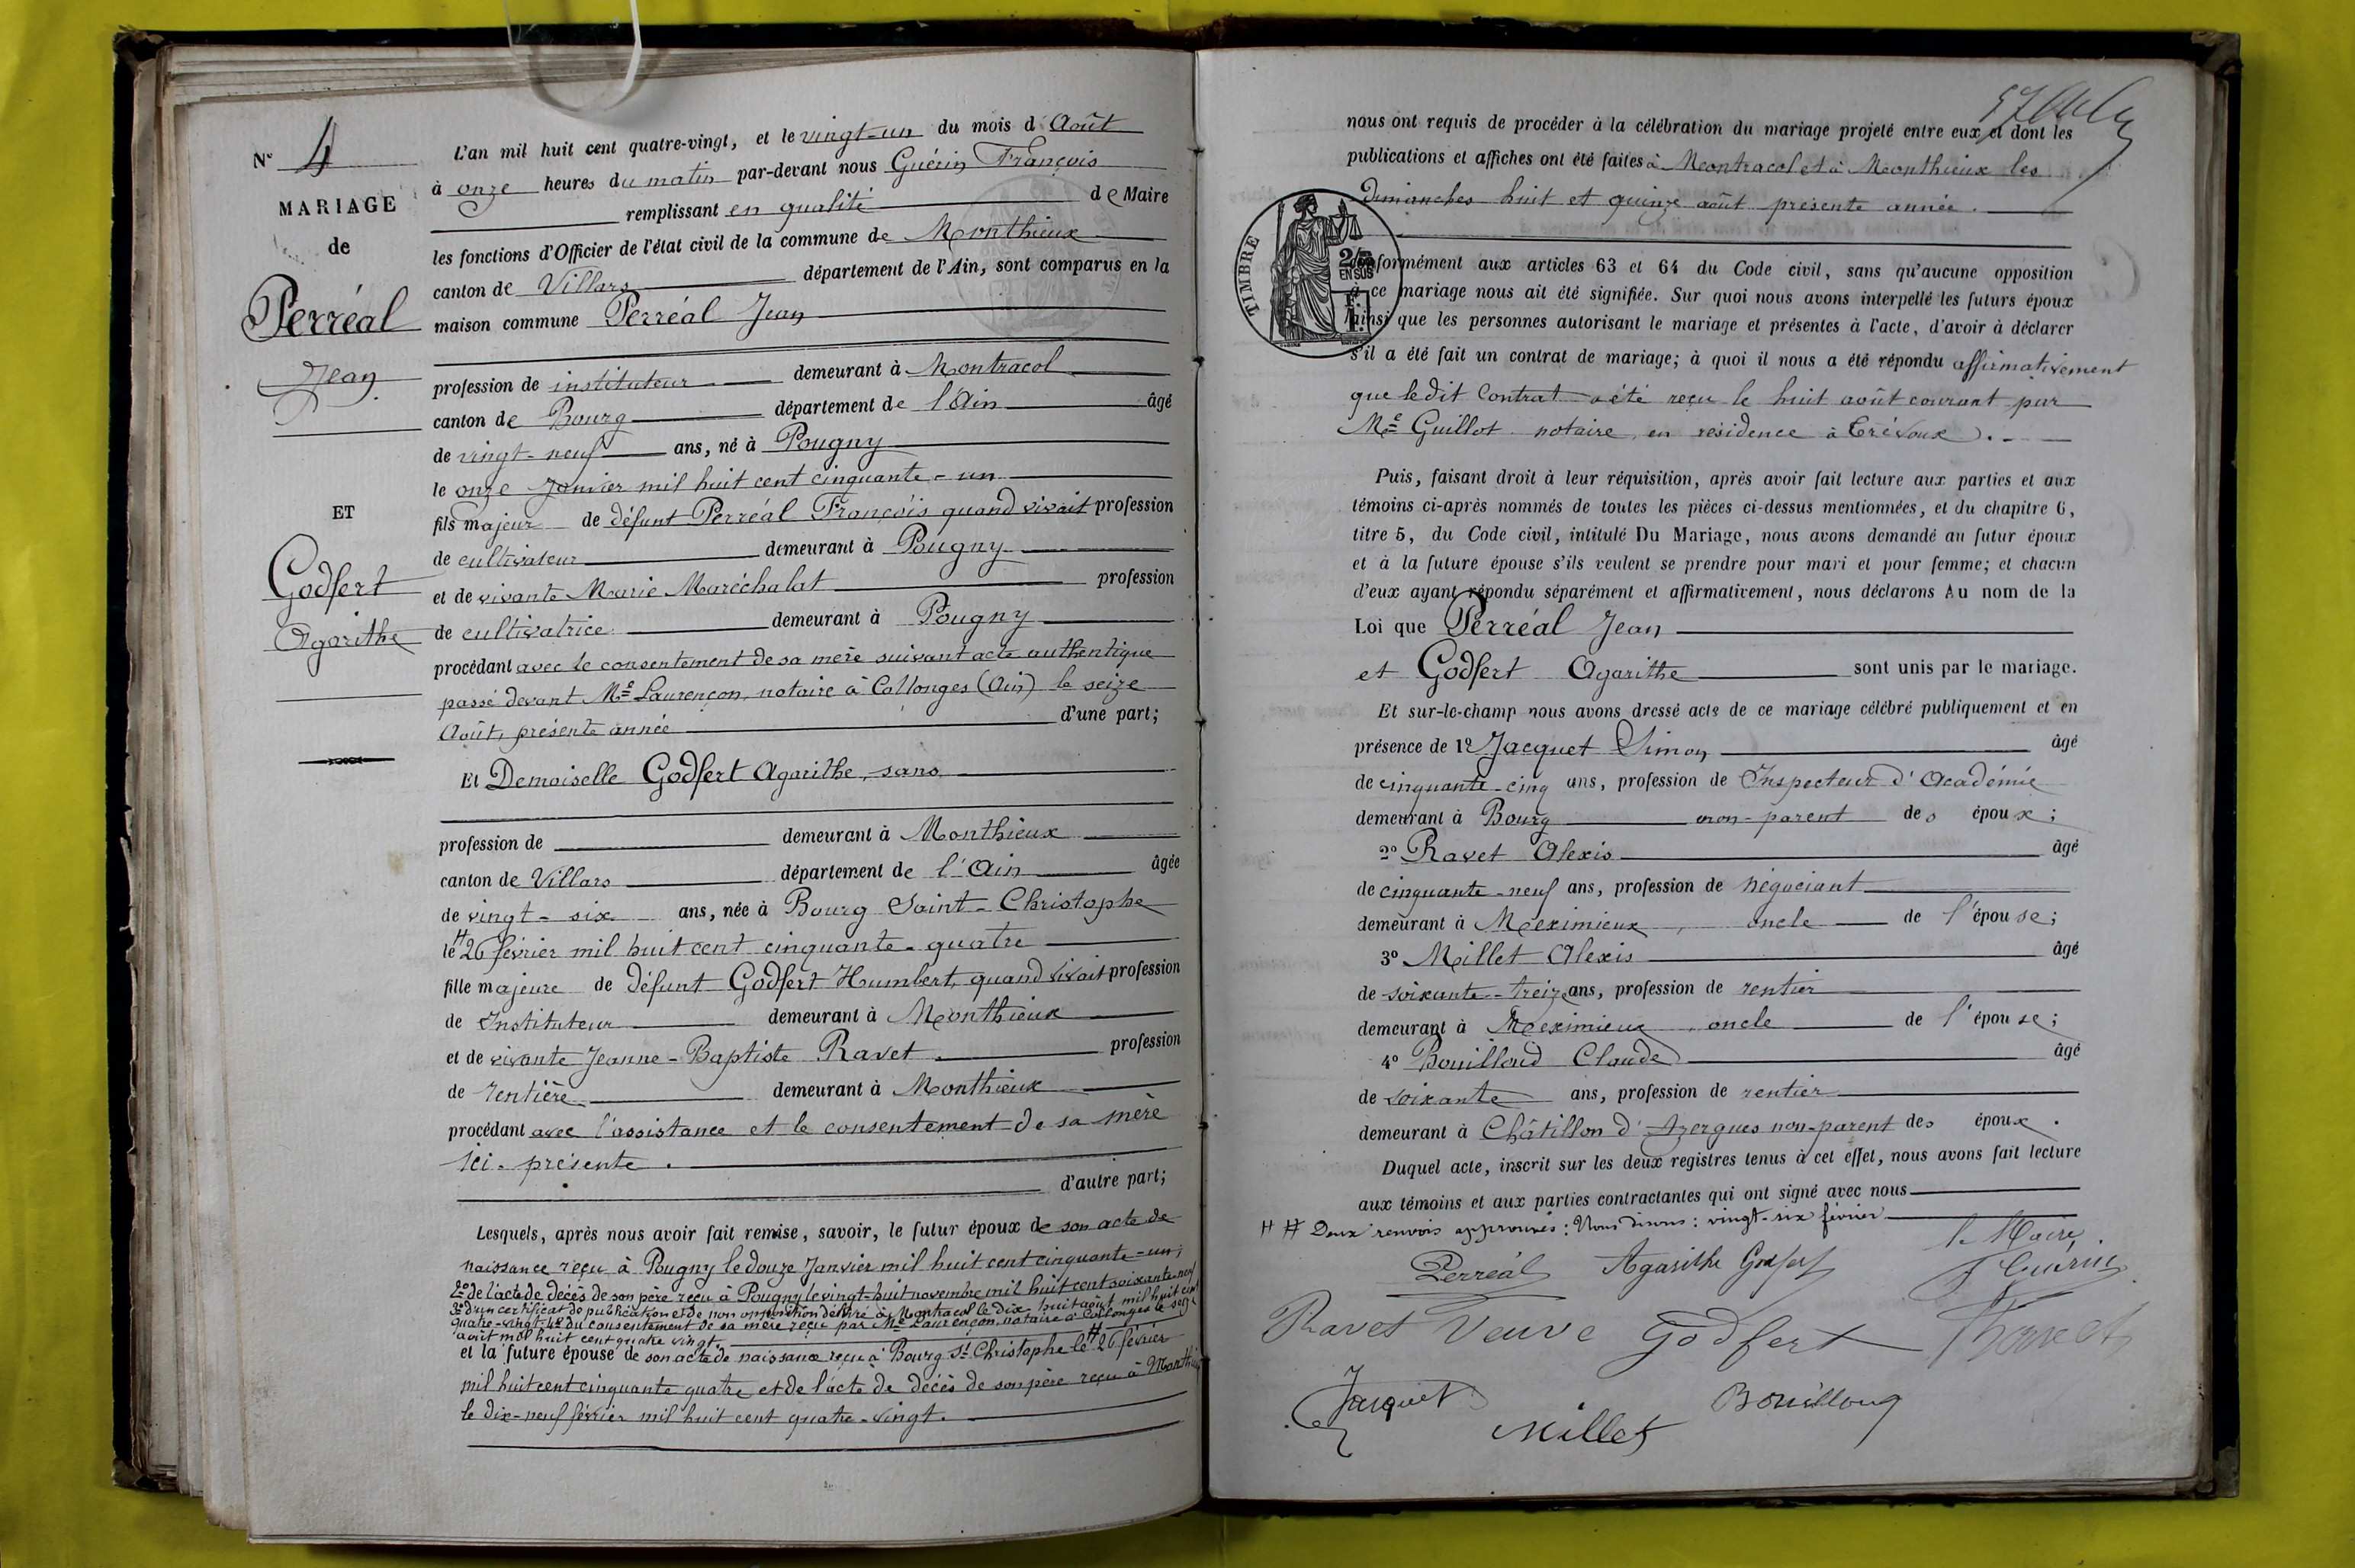 Nº 4
MARIAGE
de
Perréal
Jean
ET
Godfert
Agarithe
L'an mil huit cent quatre-vingt, et le vingt-un du mois d'Août
à onze heures du matin par-devant nous Guérin François
remplissant en qualité de Maire
les fonctions d'Officier de l'état civil de la commune de Monthieux
canton de Villars département de l'Ain, sont comparus en la
maison commune Perréal Jean
profession de instituteur demeurant à Montracol
canton de Bourg département de l'Ain âgé
de vingt-neuf ans, né à Pougny
le onze Janvier mil huit cent cinquante-un
fils majeur de défunt Perréal François quand vivait profession
de cultivateur demeurant à Pougny
et de vivante Marie Maréchalat profession
de cultivatrice demeurant à Pougny
procédant avec le consentement de sa mère suivant acte authentique
passé devant Me Laurençon, notaire à Collonges (Ain) le seize
Août, présente année d'une part;
Et Demoiselle Godfert Agarithe, sans
profession de demeurant à Monthieux
canton de Villars département de l'Ain âgée
de vingt-six ans, née à Bourg Saint-Christophe
le # 26 février mil huit cent cinquante-quatre
fille majeure de défunt Godfert Humbert, quand vivait profession
de Instituteur demeurant à Monthieux
et de vivante Jeanne-Baptiste Ravet profession
de rentière demeurant à Monthieux
procédant avec l'assistance et le consentement de sa mère
ici-présente.
d'autre part;
Lesquels, après nous avoir fait remise, savoir, le futur époux de son acte de
naissance reçu à Pougny le douze Janvier mil huit cent cinquante-un;
2º de l'acte de décès de son père reçu à Pougny le vingt-huit novembre mil huit cent soixante-neuf
3º d'un certificat de publication et de non opposition délivré à Montracol le dix-huit août mil huit cent
quatre-vingt 4º du consentement de sa mère reçu par Me Laurençon, notaire à Collonges le seize
août mil huit cent quatre vingt
et la future épouse de son acte de naissance reçu à Bourg St Christophe le # 26 février
mil huit cent cinquante quatre et de l'acte de décès de son père reçu à Monthieux
le dix-neuf février mil huit cent quatre-vingt.
nous ont requis de procéder à la célébration du mariage projeté entre eux et dont les
publications et affiches ont été faites à Montracol et à Monthieux les
dimanches huit et quinze août présente année.
TIMBRE
2/10
EN SUS
conformément aux articles 63 et 64 du Code civil, sans qu'aucune opposition
à ce mariage nous ait été signifiée. Sur quoi nous avons interpellé les futurs époux
ainsi que les personnes autorisant le mariage et présentes à l'acte, d'avoir à déclarer
s'il a été fait un contrat de mariage; à quoi il nous a été répondu affirmativement
que ledit Contrat a été reçu le huit août courant par
Me Guillot notaire en résidence à Trévoux.
Puis, faisant droit à leur réquisition, après avoir fait lecture aux parties et aux
témoins ci-après nommés de toutes les pièces ci-dessus mentionnées, et du chapitre 6,
titre 5, du Code civil, intitulé Du Mariage, nous avons demandé au futur époux
et à la future épouse s'ils veulent se prendre pour mari et pour femme; et chacun
d'eux ayant répondu séparément et affirmativement, nous déclarons Au nom de la
Loi que Perréal Jean
et Godfert Agarithe sont unis par le mariage.
Et sur-le-champ nous avons dressé acte de ce mariage célébré publiquement et en
présence de 1º Jacquet Simon âgé
de cinquante-cinq ans, profession de Inspecteur d'Académie
demeurant à Bourg non-parent des époux;
2º Ravet Alexis âgé
de cinquante-neuf ans, profession de négociant
demeurant à Meximieux, oncle de l'épouse;
3º Millet Alexis âgé
de soixante-treize ans, profession de rentier
demeurant à Meximieux, oncle de l'épouse;
4º Bouilloud Claude âgé
de soixante ans, profession de rentier
demeurant à Châtillon d'Azergues non-parent des époux.
Duquel acte, inscrit sur les deux registres tenus à cet effet, nous avons fait lecture
aux témoins et aux parties contractantes qui ont signé avec nous
# # Deux renvois approuvés: Nous disons: vingt-six février
Perréal Agarithe Godfert le Maire
F Guérin
Ravet Veuve Godfert Ravet
Jacquet Bouilloud
Millet